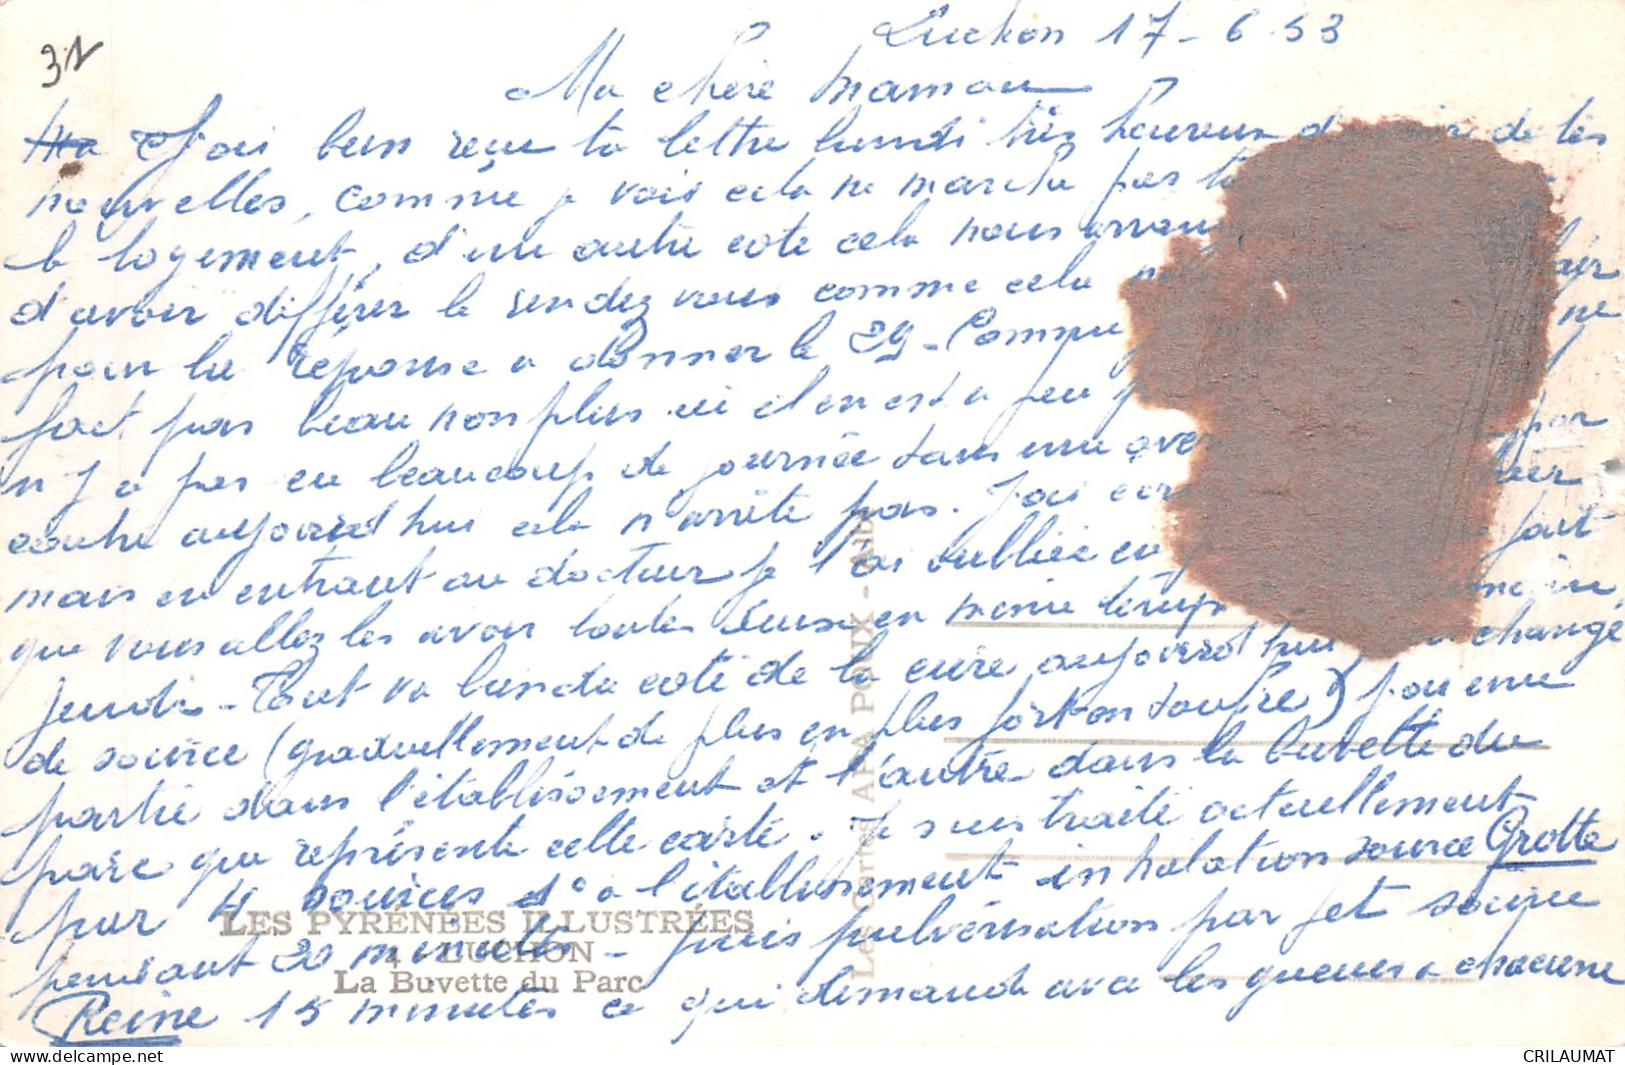 31
Luchon 17-6-53
Ma chère maman
J'ai bien reçu ta lettre lundi très heureux de tes
nouvelles, comme je vois cela ne marche pas
le logement, d'un autre coté cela nous
d'avoir différer le rendez vous comme cela
pour la réponse a donner le 29 - ne
fait pas beau non plus ici il en est a peu
n'y a pas eu beaucoup de journée sans une par
contre aujourd'hui cela n'arrête pas. J'ai
mais en entrant au docteur je l'ai oubliée fait
que vous allez les avoir toutes deux en même temps
jeudi - Tout va bien du coté de la cure aujourd'hui changé
de source (graduellement de plus en plus fort en soufre) j'ai une
partie dans l'établissement et l'autre dans la buvette du
parc que représente cette carte. Je suis traité actuellement
par 4 sources 1° a l'établissement inhalation source Grotte
pendant 20 minutes - puis pulvérisation par jet source
Reine 15 minutes ce qui demande avec les queues a chacune
LES PYRÉNÉES ILLUSTRÉES
4 - LUCHON
La Buvette du Parc
APA POUX - Albi
CRILAUMAT